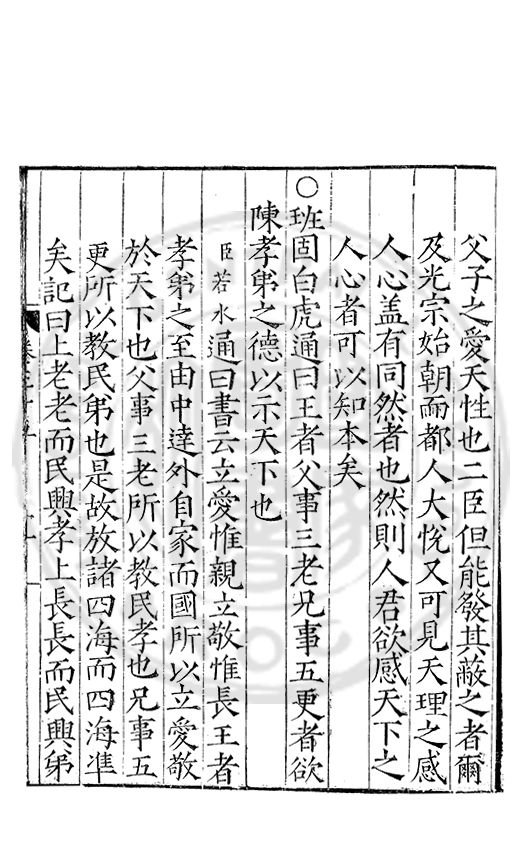 父子之愛天性也二臣但能發其蔽之者爾
及光宗始朝而都人大悅又可見天理之感
人心盖有同然者也然則人君欲感天下之
人心者可以知本矣
○班固白虎通曰王者父事三老兄事五更者欲
陳孝弟之德以示天下也
臣若水通曰書云立愛惟親立敬惟長王者
孝弟之至由中達外自家而國所以立愛敬
於天下也父事三老所以教民孝也兄事五
更所以教民弟也是故放諸四海而四海準
矣記曰上老老而民興孝上長長而民興弟